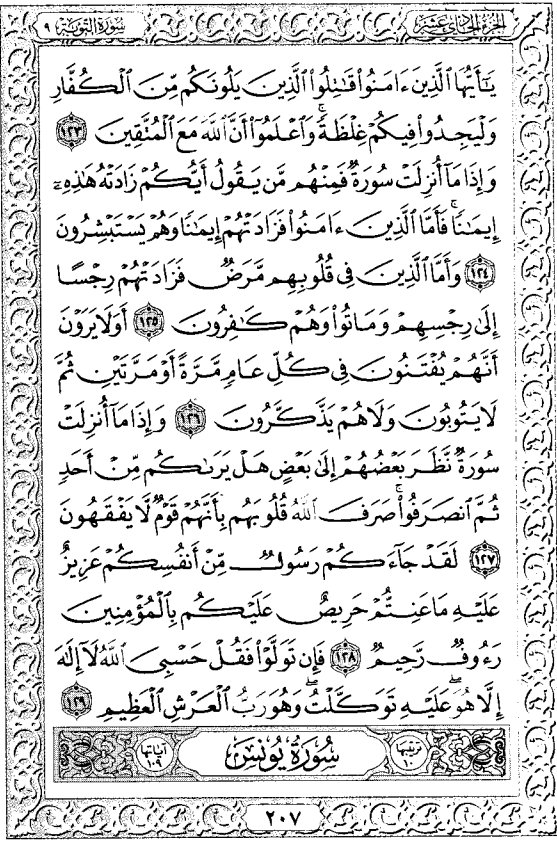 الجزء الحادي عشر سورة التوبة ٩
يَٰٓأَيُّهَا ٱلَّذِينَ ءَامَنُوا۟ قَٰتِلُوا۟ ٱلَّذِينَ يَلُونَكُم مِّنَ ٱلْكُفَّارِ
وَلْيَجِدُوا۟ فِيكُمْ غِلْظَةً ۚ وَٱعْلَمُوٓا۟ أَنَّ ٱللَّهَ مَعَ ٱلْمُتَّقِينَ ١٢٣
وَإِذَا مَآ أُنزِلَتْ سُورَةٌ فَمِنْهُم مَّن يَقُولُ أَيُّكُمْ زَادَتْهُ هَٰذِهِۦٓ
إِيمَٰنًا ۚ فَأَمَّا ٱلَّذِينَ ءَامَنُوا۟ فَزَادَتْهُمْ إِيمَٰنًا وَهُمْ يَسْتَبْشِرُونَ
١٢٤ وَأَمَّا ٱلَّذِينَ فِى قُلُوبِهِم مَّرَضٌ فَزَادَتْهُمْ رِجْسًا
إِلَىٰ رِجْسِهِمْ وَمَاتُوا۟ وَهُمْ كَٰفِرُونَ ١٢٥ أَوَلَا يَرَوْنَ
أَنَّهُمْ يُفْتَنُونَ فِى كُلِّ عَامٍ مَّرَّةً أَوْ مَرَّتَيْنِ ثُمَّ
لَا يَتُوبُونَ وَلَا هُمْ يَذَّكَّرُونَ ١٢٦ وَإِذَا مَآ أُنزِلَتْ
سُورَةٌ نَّظَرَ بَعْضُهُمْ إِلَىٰ بَعْضٍ هَلْ يَرَىٰكُم مِّنْ أَحَدٍ
ثُمَّ ٱنصَرَفُوا۟ ۚ صَرَفَ ٱللَّهُ قُلُوبَهُم بِأَنَّهُمْ قَوْمٌ لَّا يَفْقَهُونَ
١٢٧ لَقَدْ جَآءَكُمْ رَسُولٌ مِّنْ أَنفُسِكُمْ عَزِيزٌ
عَلَيْهِ مَا عَنِتُّمْ حَرِيصٌ عَلَيْكُم بِٱلْمُؤْمِنِينَ
رَءُوفٌ رَّحِيمٌ ١٢٨ فَإِن تَوَلَّوْا۟ فَقُلْ حَسْبِىَ ٱللَّهُ لَآ إِلَٰهَ
إِلَّا هُوَ ۖ عَلَيْهِ تَوَكَّلْتُ ۖ وَهُوَ رَبُّ ٱلْعَرْشِ ٱلْعَظِيمِ ١٢٩
ترتيبها ١٠ سُورَةُ يُونُسَ آياتها ١٠٩
٢٠٧